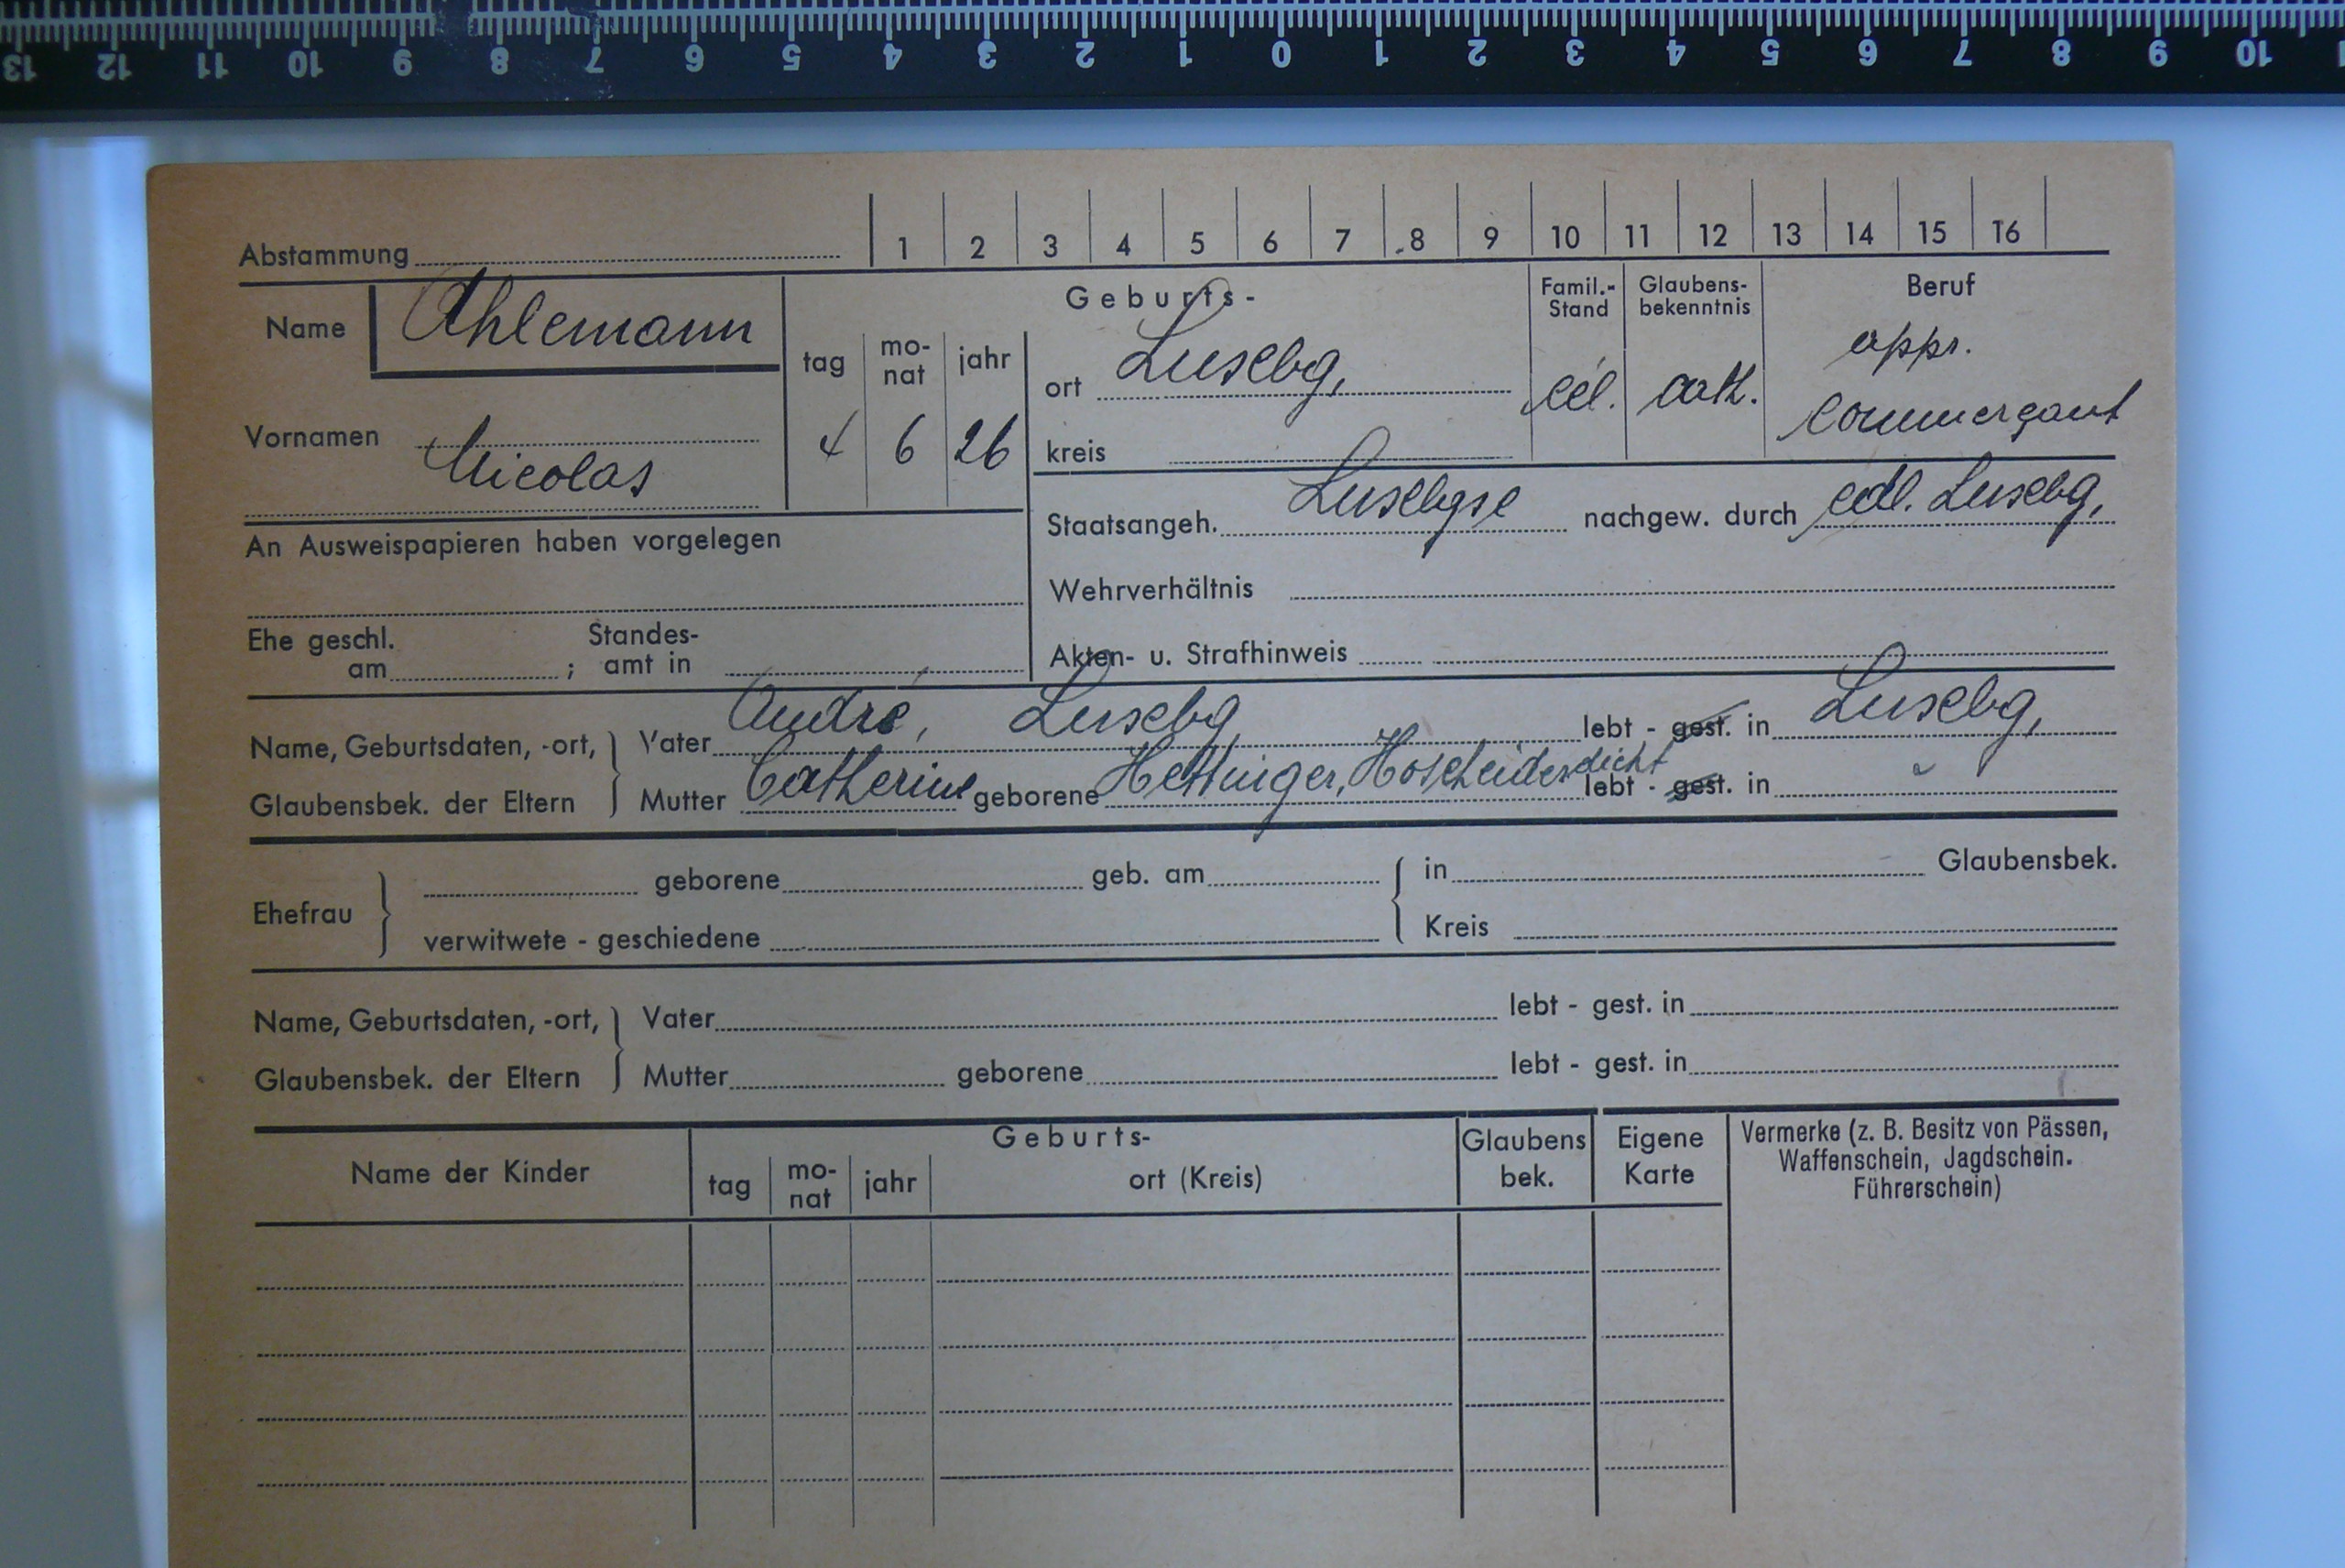 13 12 11 10 9 8 7 6 5 4 3 2 1 0 1 2 3 4 5 6 7 8 9 10
Abstammung 1 2 3 4 5 6 7 8 9 10 11 12 13 14 15 16
Name Ahlemann
Vornamen Nicolas
Geburts-
tag mo-nat jahr
4 6 26
ort Luxebg,
kreis
Famil.-
Stand
cél.
Glaubens-
bekenntnis
cath.
Beruf
appr.
commerçant
An Ausweispapieren haben vorgelegen
Staatsangeh. Luxebgse nachgew. durch Luxebg,
Wehrverhältnis
Akten- u. Strafhinweis
Ehe geschl. Standes-
am ; amt in
Name, Geburtsdaten, -ort, Vater André, Luxebg, lebt - gest. in Luxebg,
Glaubensbek. der Eltern Mutter Catherine geborene Hettinger, Hoscheiderdicht lebt - gest. in "
Ehefrau geborene geb. am in Glaubensbek.
verwitwete - geschiedene Kreis
Name, Geburtsdaten, -ort, Vater lebt - gest. in
Glaubensbek. der Eltern Mutter geborene lebt - gest. in
Name der Kinder
Geburts-
tag mo-nat jahr ort (Kreis)
Glaubens
bek.
Eigene
Karte
Vermerke (z. B. Besitz von Pässen,
Waffenschein, Jagdschein.
Führerschein)